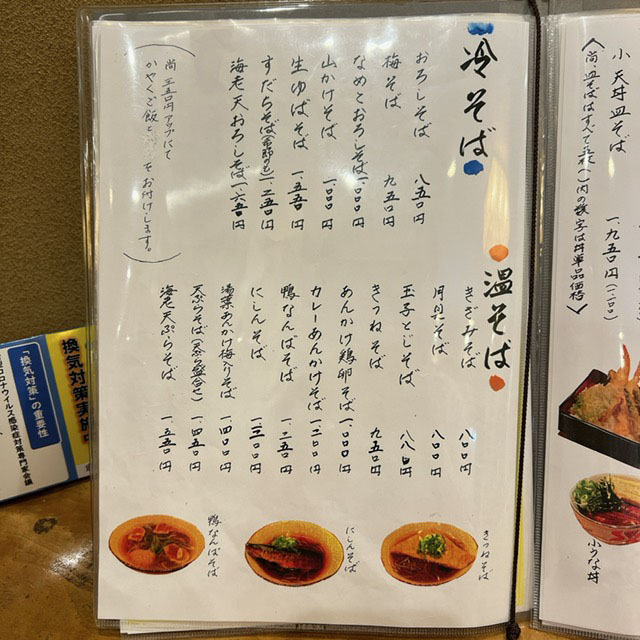 小天丼皿そば
一、九五〇円(一二〇〇)
冷そば
おろしそば 八五〇円
梅そば 九五〇円
なめこおろしそば 一、〇〇〇円
山かけそば 一、〇〇〇円
生ゆばそば 一、五五〇円
すだちそば 一、二五〇円
海老天おろしそば 一、六五〇円
尚 三五〇円アップにて
かやくご飯と をお付けします。
温そば
きざみそば 八〇〇円
月見そば 八〇〇円
玉子とじそば 八八〇円
きつねそば 九五〇円
あんかけ鶏卵そば 一、〇〇〇円
カレーあんかけそば 一、二〇〇円
鴨なんばそば 一、二五〇円
にしんそば 一、三〇〇円
湯葉あんかけ梅入りそば 一、四〇〇円
天ぷらそば(天ぷら盛合さ) 一、四五〇円
海老天ぷらそば 一、五五〇円
きつねそば
にしんそば
鴨なんばそば
小うな丼
換気対策実施中
「換気対策」の重要性
コロナウイルス感染症対策専門家会議